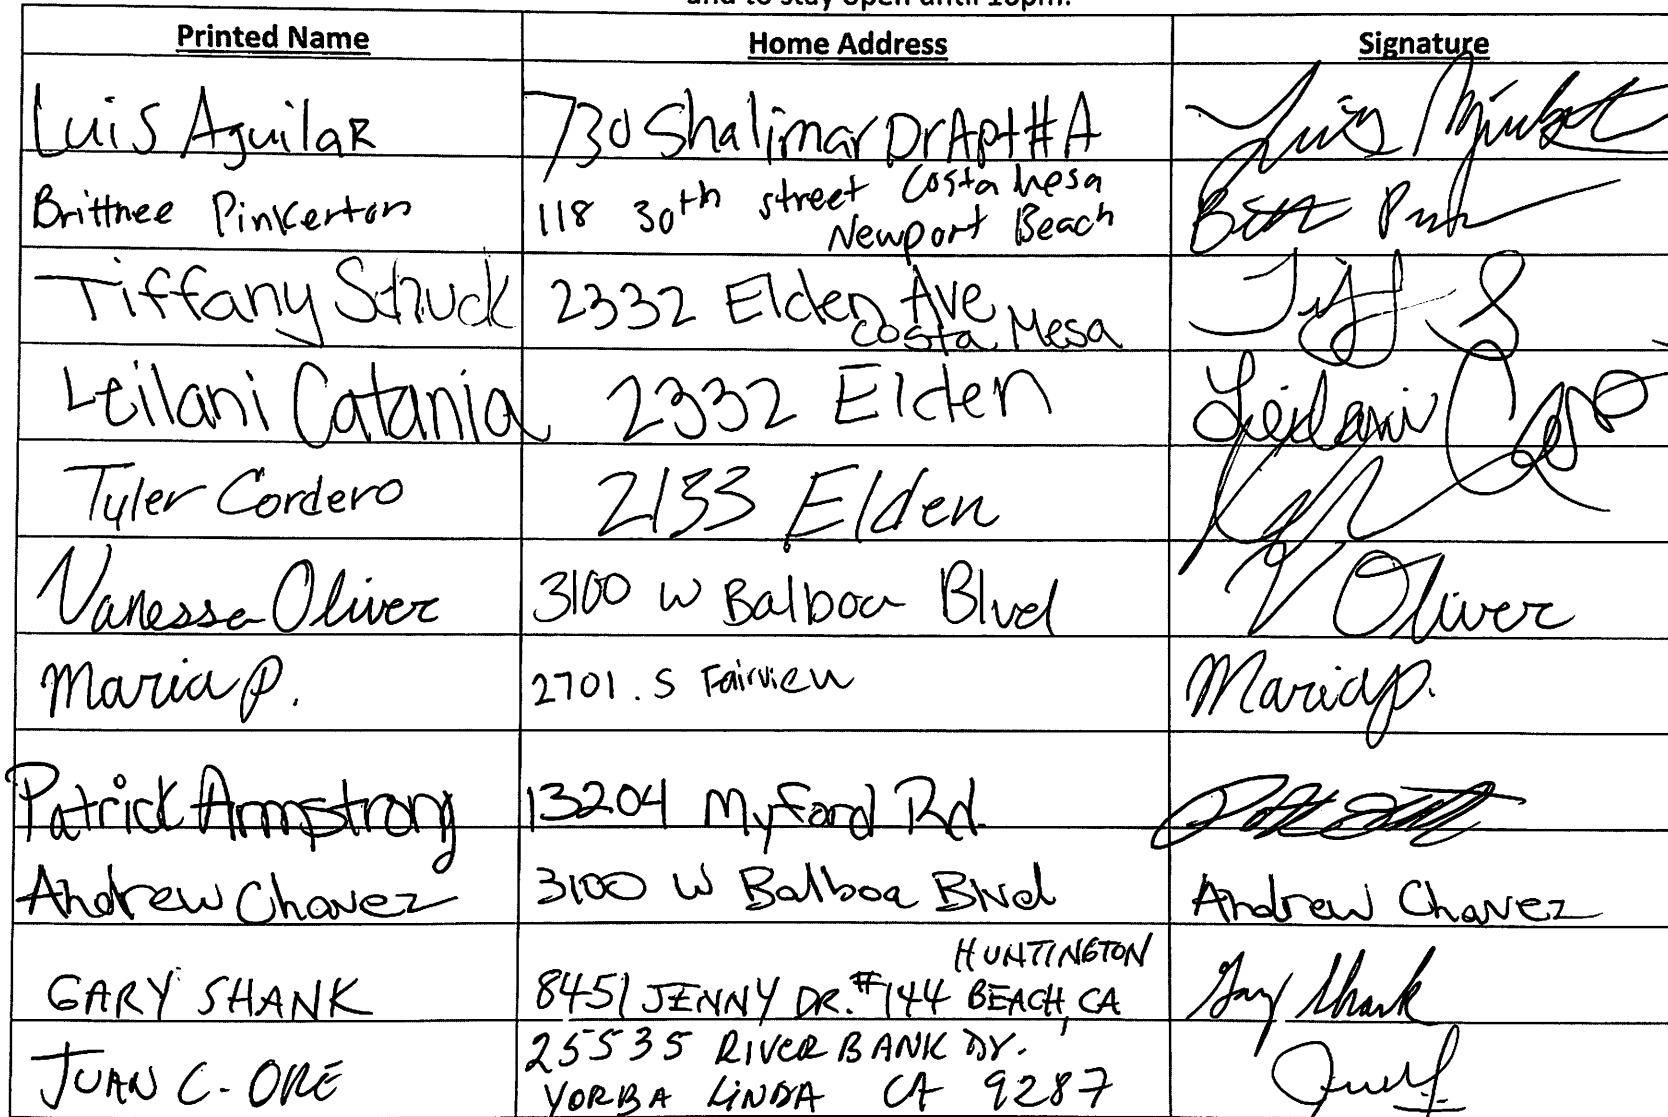 and to stay open until 10pm.
Printed Name Home Address Signature
Luis Aguilar 730 Shalimar Dr Apt #A Luis
Costa Mesa
Brittnee Pinkerton 118 30th street
Newport Beach
Tiffany Struck 2332 Elden Ave Tiff S
Costa Mesa
Leilani Catania 2332 Elden Leilani
Tyler Cordero 2133 Elden
Vanessa Oliver 3100 W Balboa Blvd V Oliver
Maria P. 2701. S Fairview Maria p.
Patrick Armstrong 13204 Myford Rd.
Andrew Chavez 3100 W Balboa Blvd Andrew Chavez
HUNTINGTON
GARY SHANK 8451 JENNY DR. #144 BEACH, CA Gary Shank
25535 RIVER BANK Dr.
JUAN C. ORE YORBA LINDA CA 9287